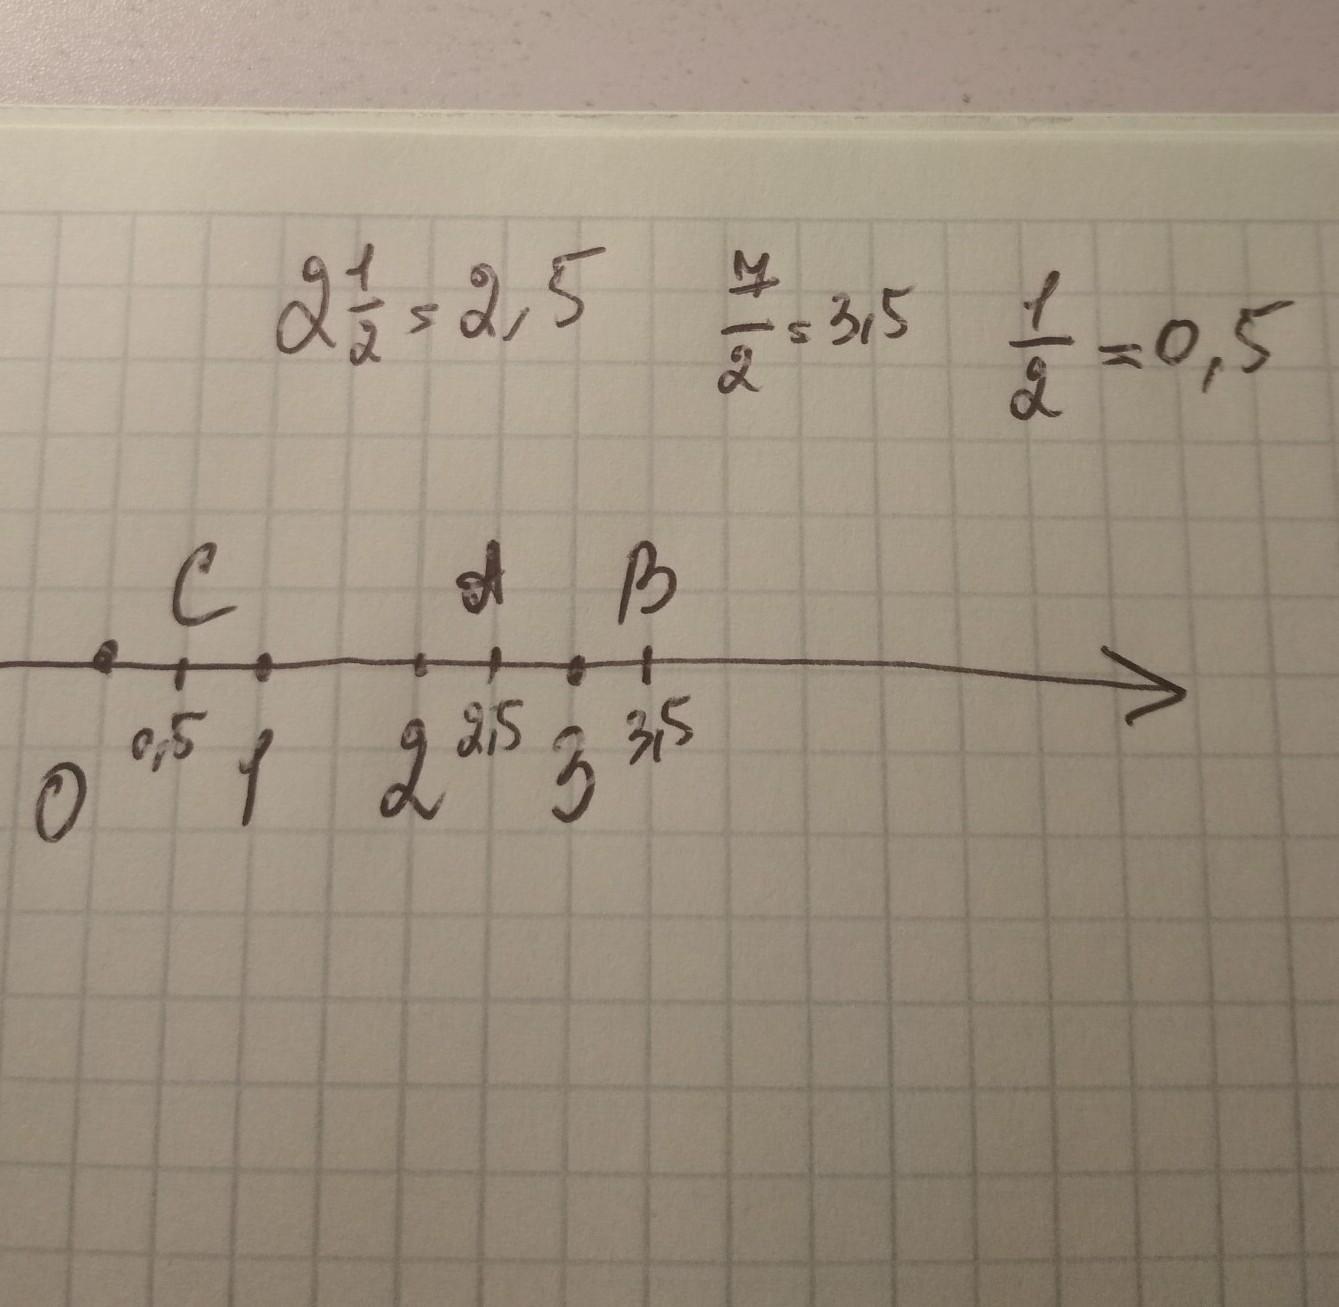 2 1/2 = 2,5 7/2 = 3,5 1/2 = 0,5
C A B
0 0,5 1 2 2,5 3 3,5